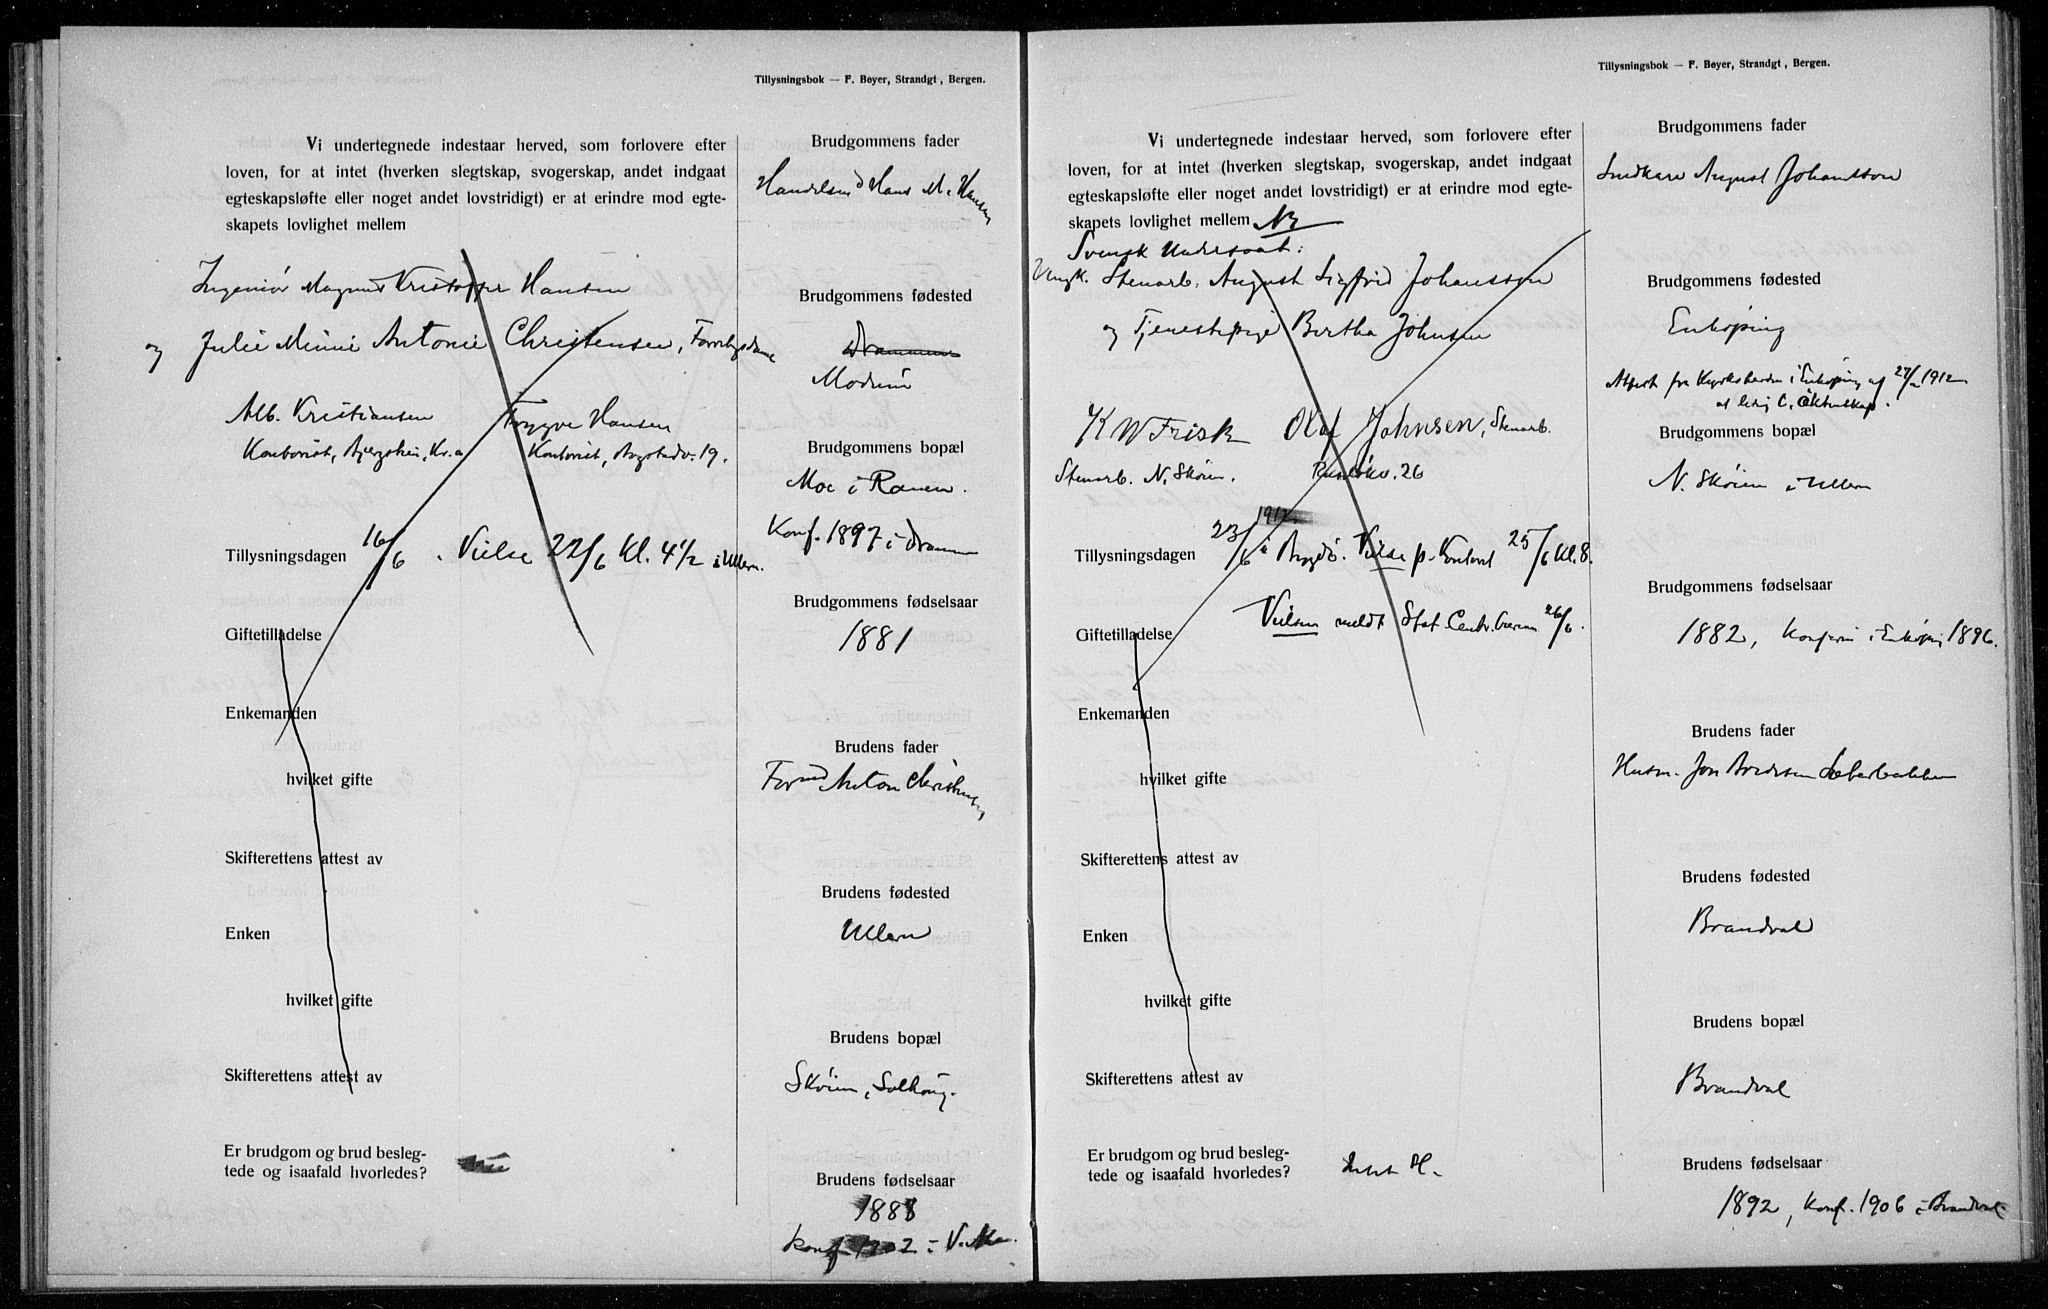 Tillysningsbok — F. Beyer, Strandgt, Bergen.
Vi undertegnede indestaar herved, som forlovere efter
loven, for at intet (hverken slegtskap, svogerskap, andet indgaat
egteskapsløfte eller noget andet lovstridigt) er at erindre mod egte-
skapets lovlighet mellem
Ingeniør Magnus Kristoffer Hansen
og Julie Minni Antonie Christensen,
Alb. Kristiansen
Trygve Hansen
Kontorist, Kr.a
Kontorist, 19.
Tillysningsdagen 16/6. Vielse 22/6 Kl. 4 1/2 i Ullern.
Giftetilladelse
Enkemanden
hvilket gifte
Skifterettens attest av
Enken
hvilket gifte
Skifterettens attest av
Er brudgom og brud besleg-
tede og isaafald hvorledes?
Brudgommens fader
Handelsmd Hans M. Hansen
Brudgommens fødested
Drammen
Modum
Brudgommens bopæl
Moe i Ranen.
Konf. 1897 i Drammen
Brudgommens fødselsaar
1881
Brudens fader
Anton Christensen
Brudens fødested
Ullern
Brudens bopæl
Skøien, Solhaug.
Brudens fødselsaar
1888
konf 1902 i V. Aker.
Tillysningsbok — F. Beyer, Strandgt, Bergen.
Vi undertegnede indestaar herved, som forlovere efter
loven, for at intet (hverken slegtskap, svogerskap, andet indgaat
egteskapsløfte eller noget andet lovstridigt) er at erindre mod egte-
skapets lovlighet mellem NB
Svensk Undersaat:
Ungk. Stenarb. August Sigfrid Johansson
og Tjenestepige Bertha Johnsen
K W Frisk
Olaf Johnsen, Stenarb.
Stenarb. N. Skøien.
26
1912
Tillysningsdagen 23/6 i Bygdø. Vielse p. Kontoret 25/6 Kl. 8.
Vielsen meldt Stat. Centr. 26/6.
Giftetilladelse
Enkemanden
hvilket gifte
Skifterettens attest av
Enken
hvilket gifte
Skifterettens attest av
Er brudgom og brud besleg-
tede og isaafald hvorledes?
Brudgommens fader
August Johansson
Brudgommens fødested
Enköping
Attest fra Kyrkoherden i Enköping af 1912
Brudgommens bopæl
N. Skøien i Ullern
Brudgommens fødselsaar
1882, Konfirm i Enköping 1896.
Brudens fader
Husm. Jon
Brudens fødested
Brandval
Brudens bopæl
Brandval
Brudens fødselsaar
1892, Konf. 1906 i Brandval